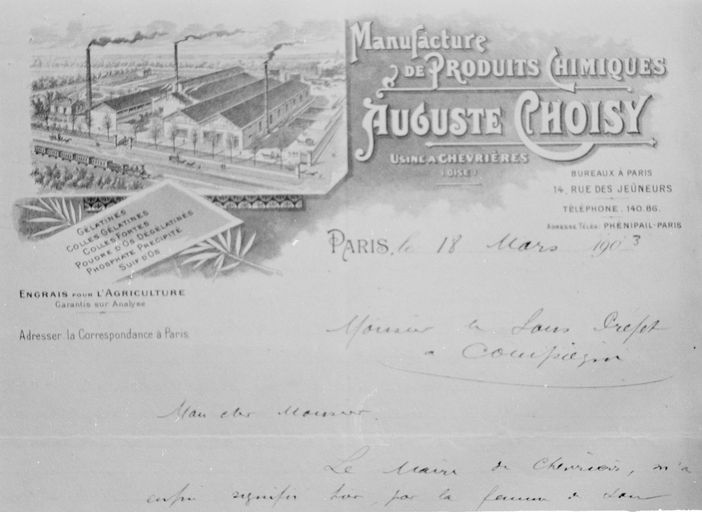 Manufacture
DE PRODUITS CHIMIQUES
AUGUSTE CHOISY
USINE A CHEVRIÈRES
(OISE)
BUREAUX À PARIS
14, RUE DES JEÛNEURS
TÉLÉPHONE. 140.86.
ADRESSE TÉLÉG. PHÉNIPAIL-PARIS
GÉLATINES
COLLES GÉLATINES
COLLES FORTES
POUDRE D'OS DÉGÉLATINÉS
PHOSPHATE PRÉCIPITÉ
SUIF D'OS
ENGRAIS POUR L'AGRICULTURE
Garantis sur Analyse
Adresser la Correspondance à Paris.
PARIS, le 18 Mars 1903
Monsieur le Sous Préfet
a Compiègne
Mon cher Monsieur.
Le Maire de Chevrières, m'a
enfin signifier hier par la femme de son